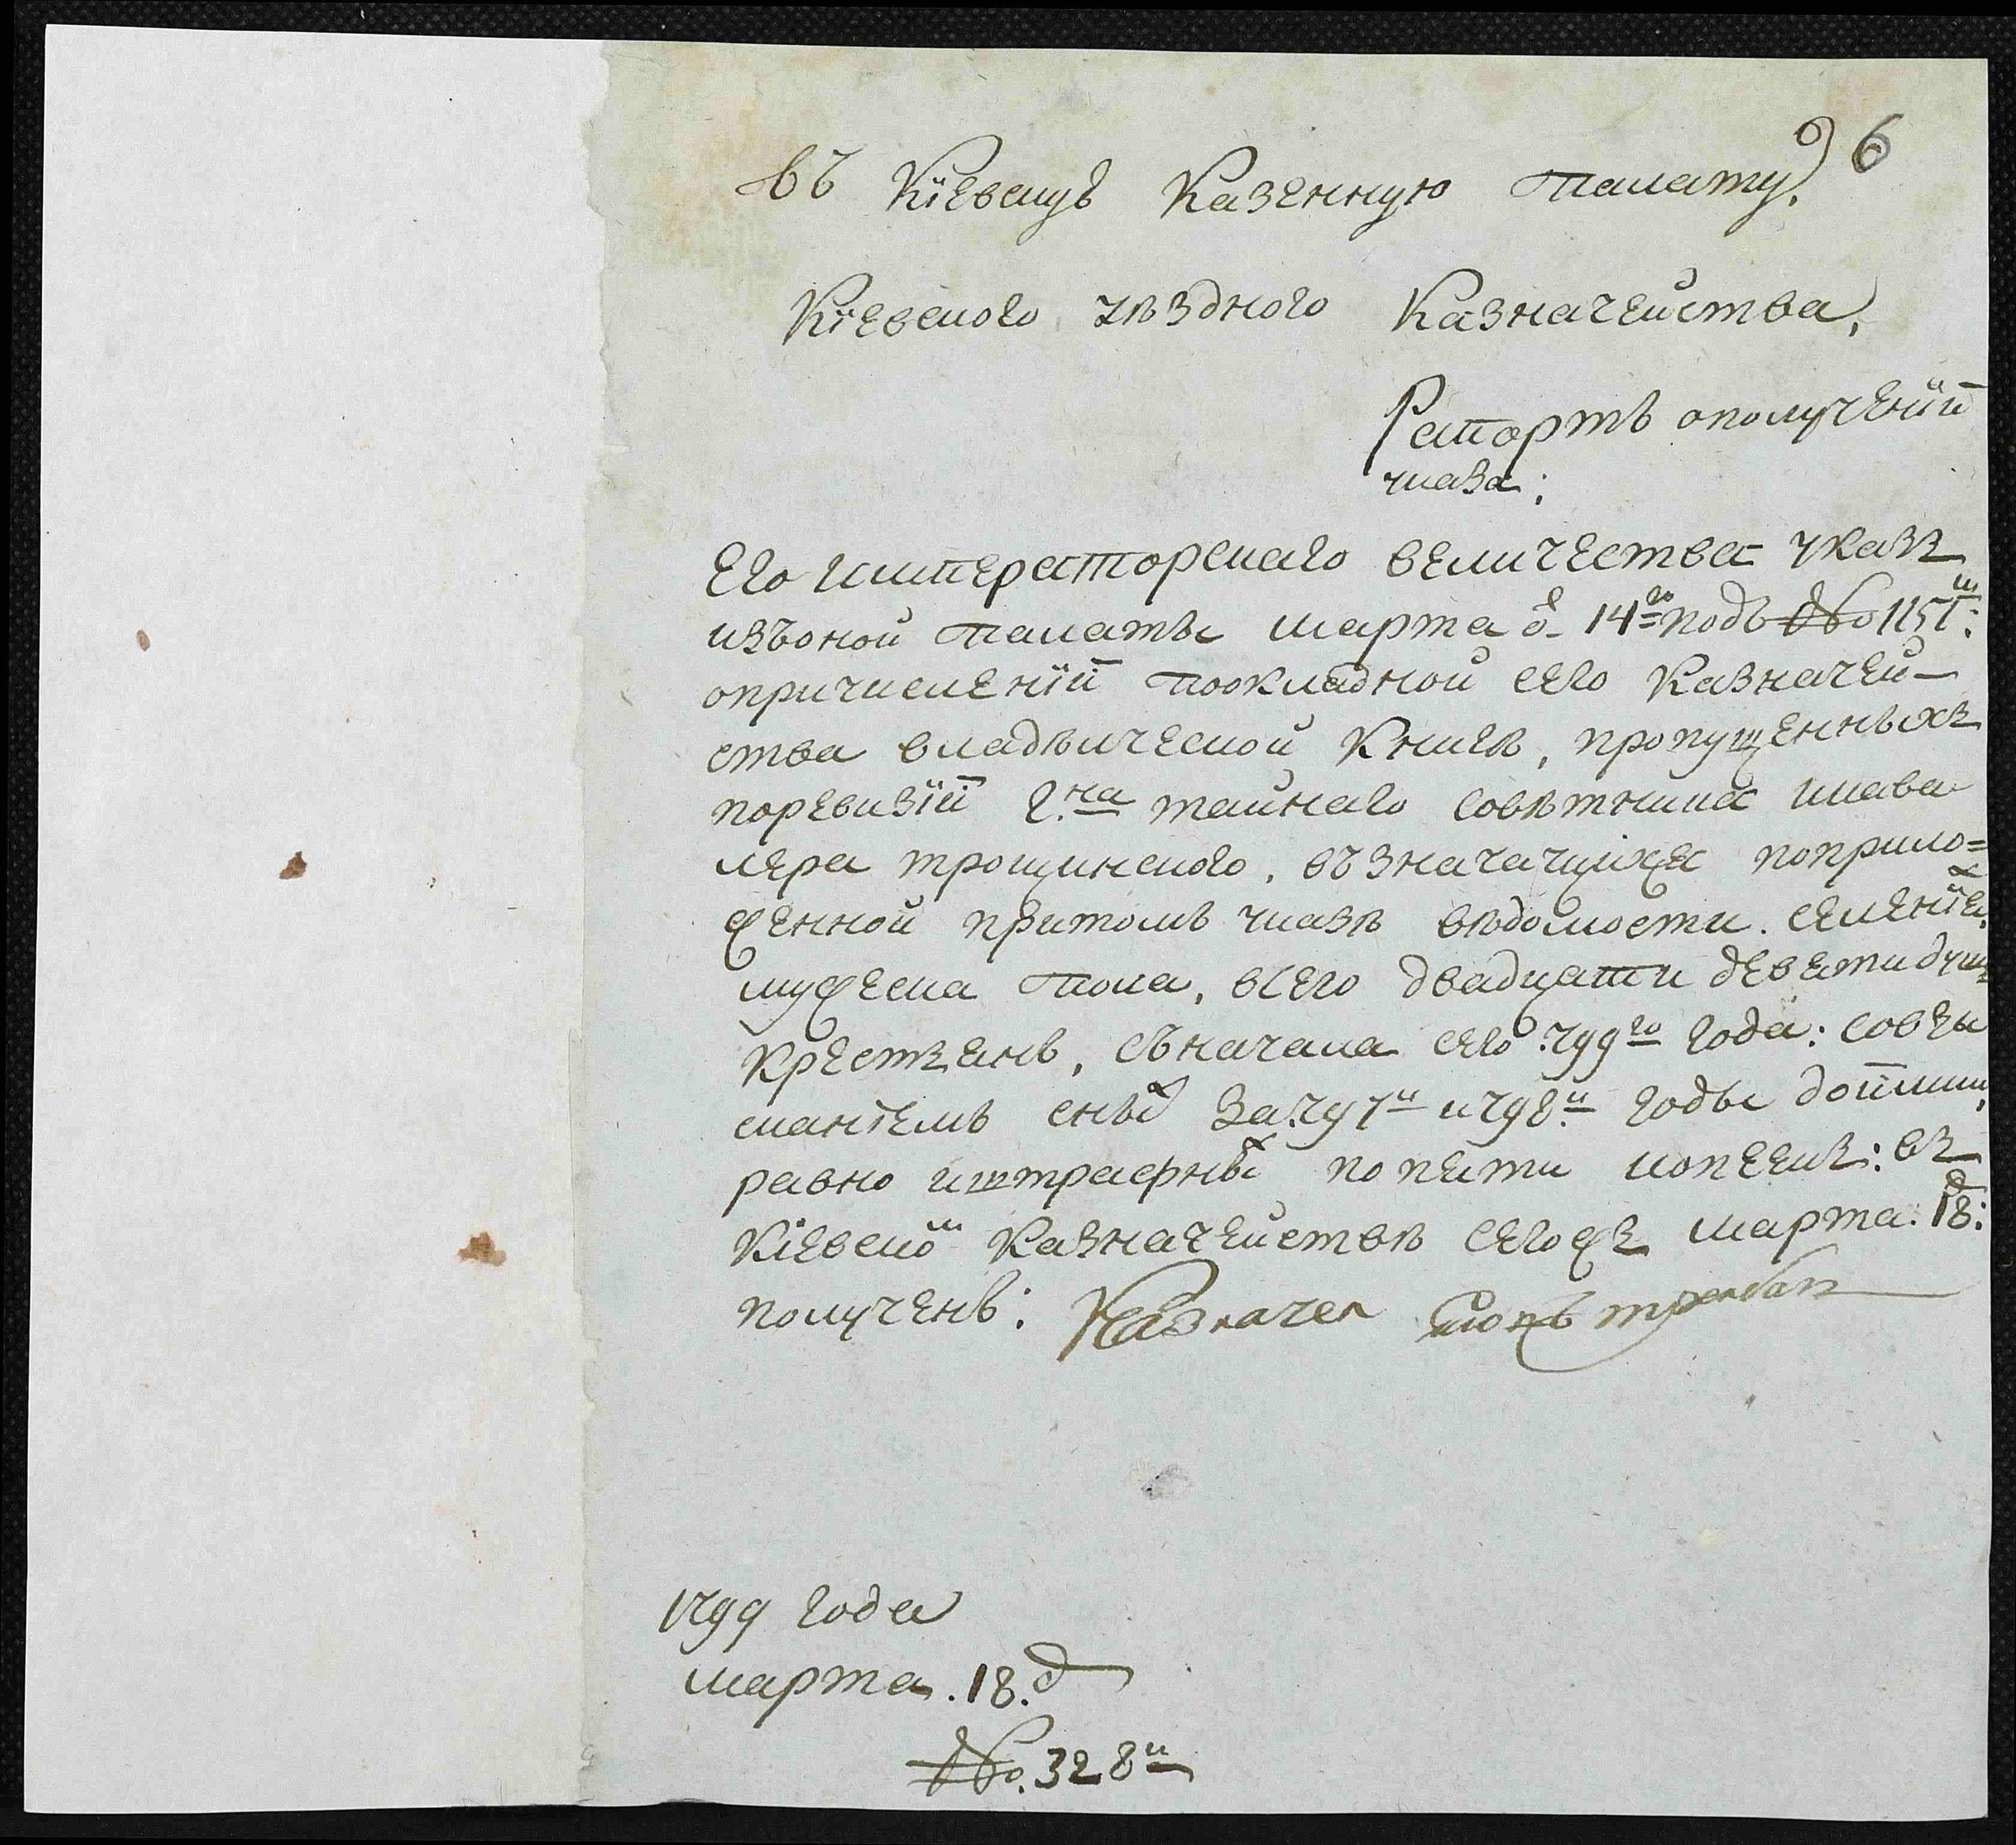 6
въ Кіевскую Казенную палату,
Кіевского уѣздного Казначейства,
Рапортъ ополученіи
указа:
Его императорскаго величества указъ
изъоной палаты марта от 14го подъ № 1151м:
опричисленіи поокладной сего Казначей-
ства владѣлческой Книгѣ, пропущенныхъ
поревизіи г.на тайнаго совѣтника икава
лера трощинского, въ значащихся поприло=
женной притомъ указѣ вѣдомости. селеніях,
мужеска пола, всего двадцати девяти душъ
Крестьянъ, съначала сего 799го года: совзы
сканіемъ оных за 797й и 798й годы доимки,
равно иштрафных попяти копеекъ: въ
Кіевском Казначействѣ сегожъ марта. 18: д
полученъ: Казначей
1799 года
марта. 18. д
№. 328й